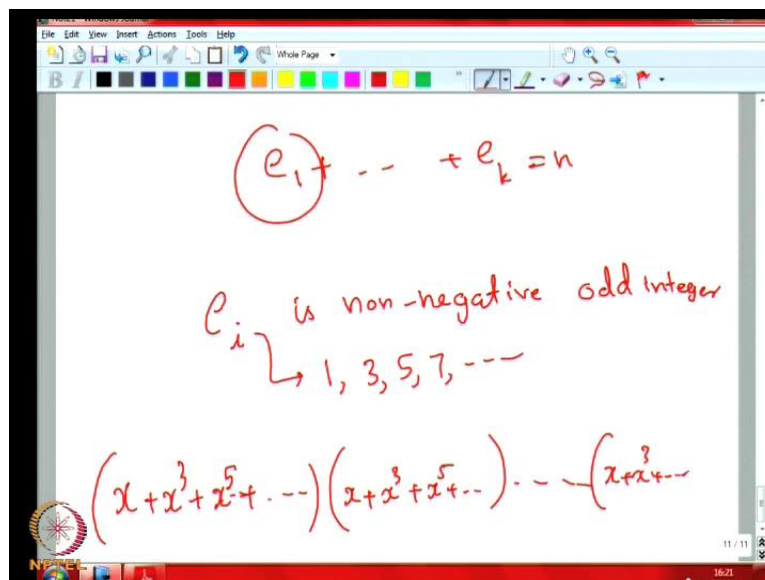 File Edit View Insert Actions Tools Help
Whole Page
B I
e₁ + -- + e_k = n
e_i is non-negative odd integer
→ 1, 3, 5, 7, ----
(x + x³ + x⁵ + ...)(x + x³ + x⁵ + ..) ---- (x + x³ + ---
11 / 11
NPTEL
16:21